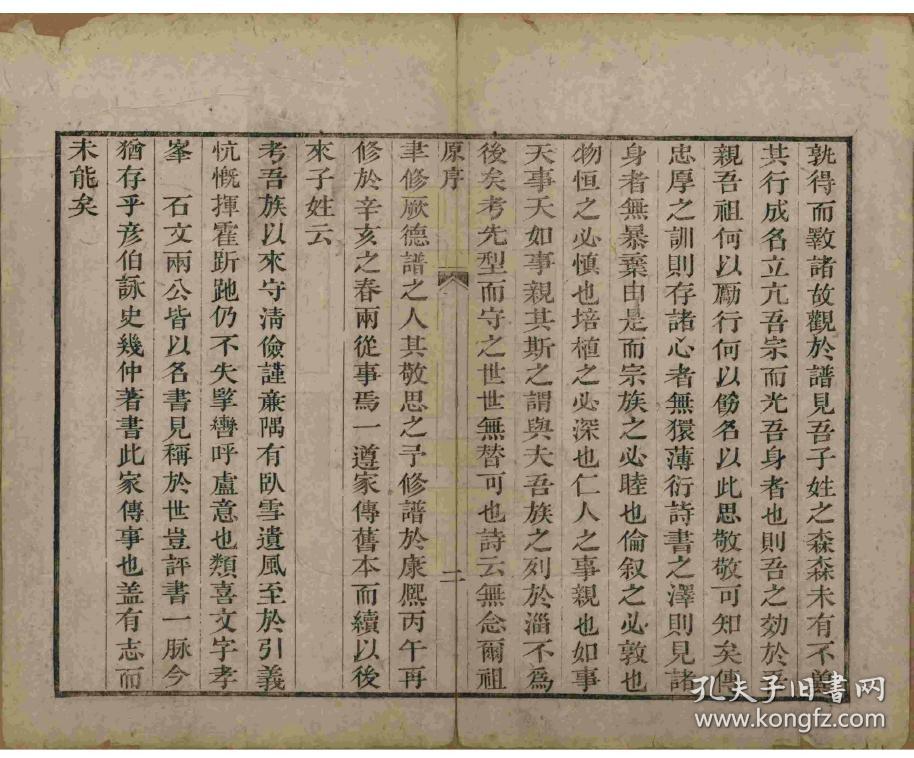 孰得而斁諸故觀於譜見吾子姓之森森未有不
其行成名立亢吾宗而光吾身者也則吾之効於
親吾祖何以勵行何以飭名以此思敬敬可知矣傳
忠厚之訓則存諸心者無獧薄衍詩書之澤則見諸
身者無暴棄由是而宗族之必睦也倫叙之必敦也
物恒之必慎也培植之必深也仁人之事親也如事
天事天如事親其斯之謂與夫吾族之列於淄不為
後矣考先型而守之世世無替可也詩云無念爾祖
原序
二
聿修厥德譜之人其敬思之予修譜於康熈丙午再
修於辛亥之春兩從事焉一遵家傳舊本而續以後
來子姓云
考吾族以來守淸儉謹亷隅有臥雪遺風至於引義
忼慨揮霍跅跎仍不失擘轡呼盧意也類喜文字孝
峯 石文兩公皆以名書見稱於世豈評書一脉今
猶存乎彦伯詠史幾仲著書此家傳事也盖有志而
未能矣
孔夫子旧书网
www.kongfz.com